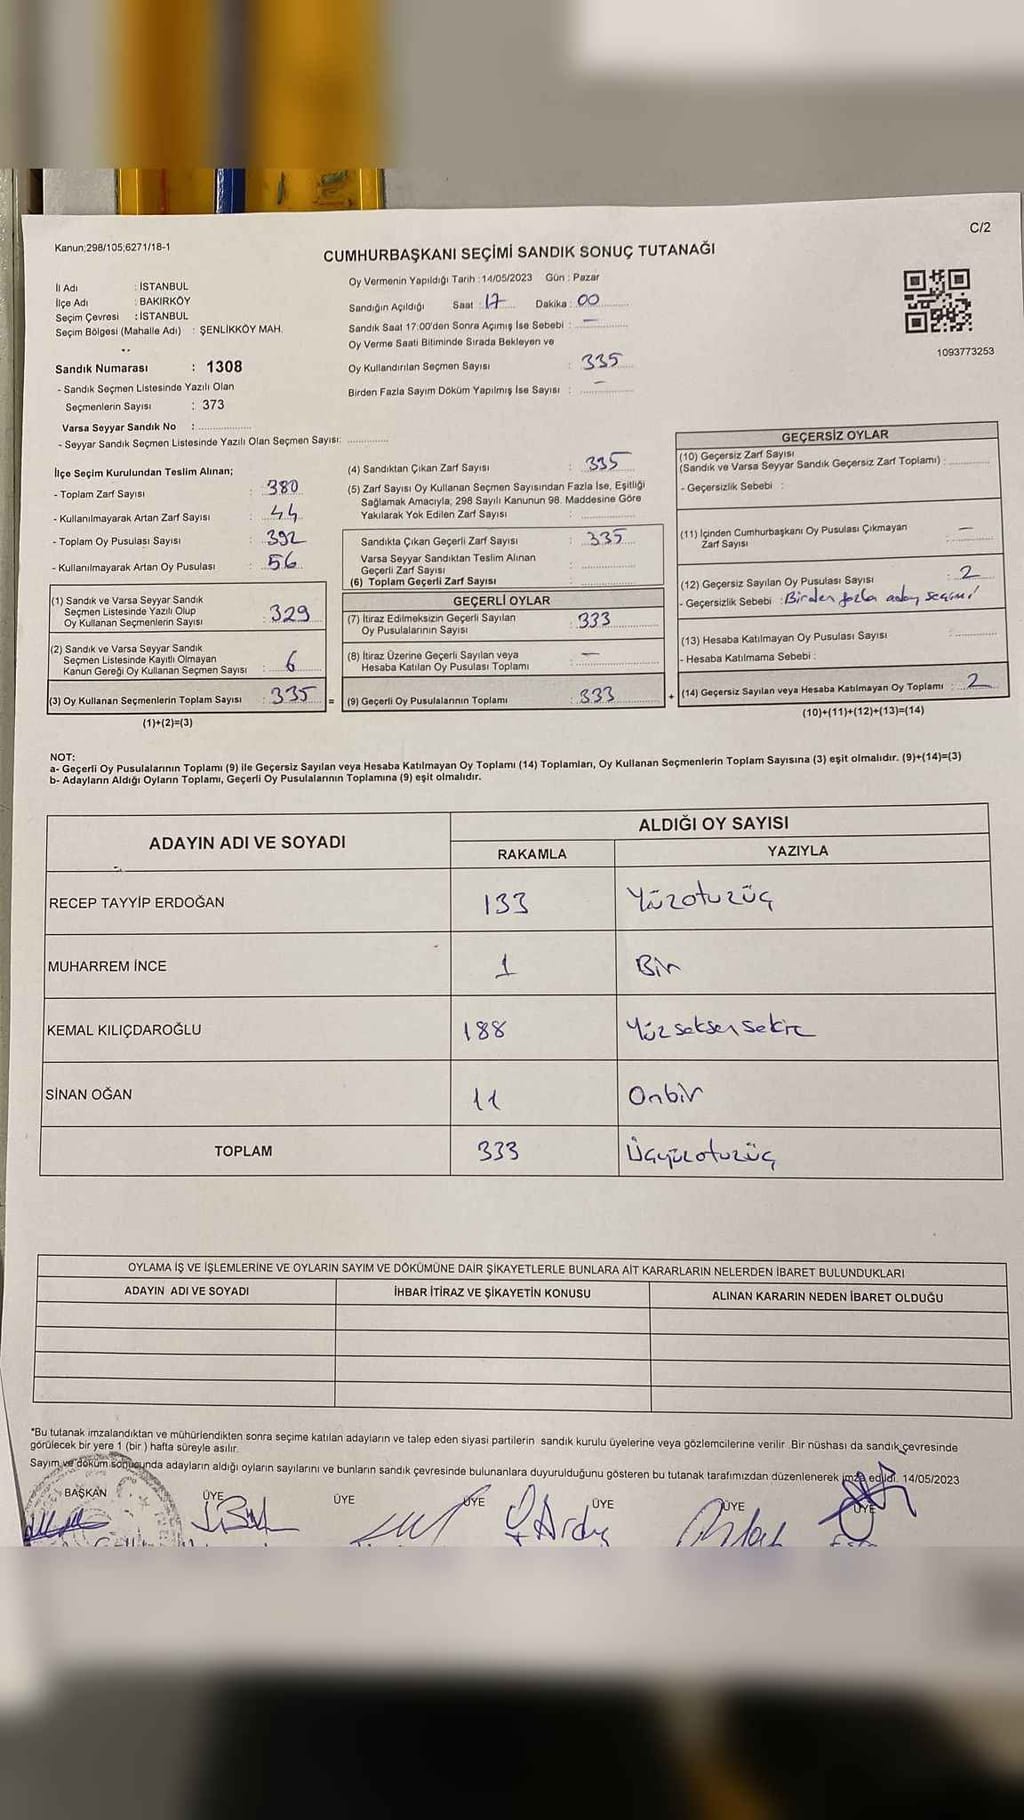 C/2
Kanun;298/105;6271/18-1
CUMHURBAŞKANI SEÇİMİ SANDIK SONUÇ TUTANAĞI
İl Adı : İSTANBUL
İlçe Adı : BAKIRKÖY
Seçim Çevresi : İSTANBUL
Seçim Bölgesi (Mahalle Adı) : ŞENLİKKÖY MAH.
Sandık Numarası : 1308
- Sandık Seçmen Listesinde Yazılı Olan
Seçmenlerin Sayısı : 373
Varsa Seyyar Sandık No :
- Seyyar Sandık Seçmen Listesinde Yazılı Olan Seçmen Sayısı:
Oy Vermenin Yapıldığı Tarih : 14/05/2023 Gün : Pazar
Sandığın Açıldığı Saat : 17 Dakika : 00
Sandık Saat 17:00'den Sonra Açımış İse Sebebi : —
Oy Verme Saati Bitiminde Sırada Bekleyen ve
Oy Kullandırılan Seçmen Sayısı : 335
Birden Fazla Sayım Döküm Yapılmış İse Sayısı : —
1093773253
İlçe Seçim Kurulundan Teslim Alınan;
- Toplam Zarf Sayısı : 380
- Kullanılmayarak Artan Zarf Sayısı : 44
- Toplam Oy Pusulası Sayısı : 392
- Kullanılmayarak Artan Oy Pusulası : 56
(1) Sandık ve Varsa Seyyar Sandık
Seçmen Listesinde Yazılı Olup
Oy Kullanan Seçmenlerin Sayısı : 329
(2) Sandık ve Varsa Seyyar Sandık
Seçmen Listesinde Kayıtlı Olmayan
Kanun Gereği Oy Kullanan Seçmen Sayısı : 6
(3) Oy Kullanan Seçmenlerin Toplam Sayısı : 335 =
(1)+(2)=(3)
(4) Sandıktan Çıkan Zarf Sayısı : 335
(5) Zarf Sayısı Oy Kullanan Seçmen Sayısından Fazla İse, Eşitliği
Sağlamak Amacıyla, 298 Sayılı Kanunun 98. Maddesine Göre
Yakılarak Yok Edilen Zarf Sayısı :
Sandıkta Çıkan Geçerli Zarf Sayısı : 335
Varsa Seyyar Sandıktan Teslim Alınan
Geçerli Zarf Sayısı :
(6) Toplam Geçerli Zarf Sayısı :
GEÇERLİ OYLAR
(7) İtiraz Edilmeksizin Geçerli Sayılan
Oy Pusulalarının Sayısı : 333
(8) İtiraz Üzerine Geçerli Sayılan veya
Hesaba Katılan Oy Pusulası Toplamı : —
(9) Geçerli Oy Pusulalarının Toplamı : 333 +
GEÇERSİZ OYLAR
(10) Geçersiz Zarf Sayısı
(Sandık ve Varsa Seyyar Sandık Geçersiz Zarf Toplamı) :
- Geçersizlik Sebebi :
(11) İçinden Cumhurbaşkanı Oy Pusulası Çıkmayan
Zarf Sayısı : —
(12) Geçersiz Sayılan Oy Pusulası Sayısı : 2
- Geçersizlik Sebebi : Birden fazla aday seçimi
(13) Hesaba Katılmayan Oy Pusulası Sayısı :
- Hesaba Katılmama Sebebi :
(14) Geçersiz Sayılan veya Hesaba Katılmayan Oy Toplamı : 2
(10)+(11)+(12)+(13)=(14)
NOT:
a- Geçerli Oy Pusulalarının Toplamı (9) ile Geçersiz Sayılan veya Hesaba Katılmayan Oy Toplamı (14) Toplamları, Oy Kullanan Seçmenlerin Toplam Sayısına (3) eşit olmalıdır. (9)+(14)=(3)
b- Adayların Aldığı Oyların Toplamı, Geçerli Oy Pusulalarının Toplamına (9) eşit olmalıdır.
ADAYIN ADI VE SOYADI ALDIĞI OY SAYISI
RAKAMLA YAZIYLA
RECEP TAYYİP ERDOĞAN 133 Yüzotuzüç
MUHARREM İNCE 1 Bir
KEMAL KILIÇDAROĞLU 188 Yüzseksensekiz
SİNAN OĞAN 11 Onbir
TOPLAM 333 Üçyüzotuzüç
OYLAMA İŞ VE İŞLEMLERİNE VE OYLARIN SAYIM VE DÖKÜMÜNE DAİR ŞİKAYETLERLE BUNLARA AİT KARARLARIN NELERDEN İBARET BULUNDUKLARI
ADAYIN ADI VE SOYADI İHBAR İTİRAZ VE ŞİKAYETİN KONUSU ALINAN KARARIN NEDEN İBARET OLDUĞU
"Bu tutanak imzalandıktan ve mühürlendikten sonra seçime katılan adayların ve talep eden siyasi partilerin sandık kurulu üyelerine veya gözlemcilerine verilir. Bir nüshası da sandık çevresinde
görülecek bir yere 1 (bir ) hafta süreyle asılır.
Sayım ve döküm sonucunda adayların aldığı oyların sayılarını ve bunların sandık çevresinde bulunanlara duyurulduğunu gösteren bu tutanak tarafımızdan düzenlenerek imza edildi. 14/05/2023
BAŞKAN ÜYE ÜYE ÜYE ÜYE ÜYE ÜYE